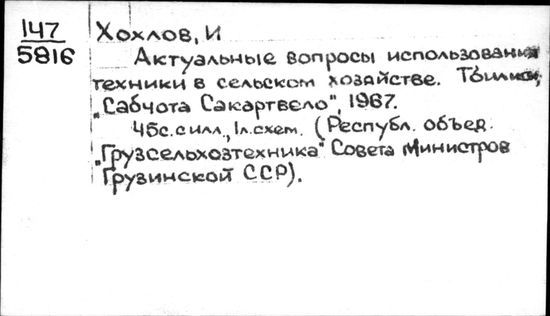 147
5816
Хохлов, И
Актуальные вопросы использования
техники в сельском хозяйстве. Тбилиси,
„Сабчота Сакартвело", 1967.
45с. с илл., 1л. схем. (Республ. объед.
„Грузсельхозтехника" Совета Министров
Грузинской ССР).